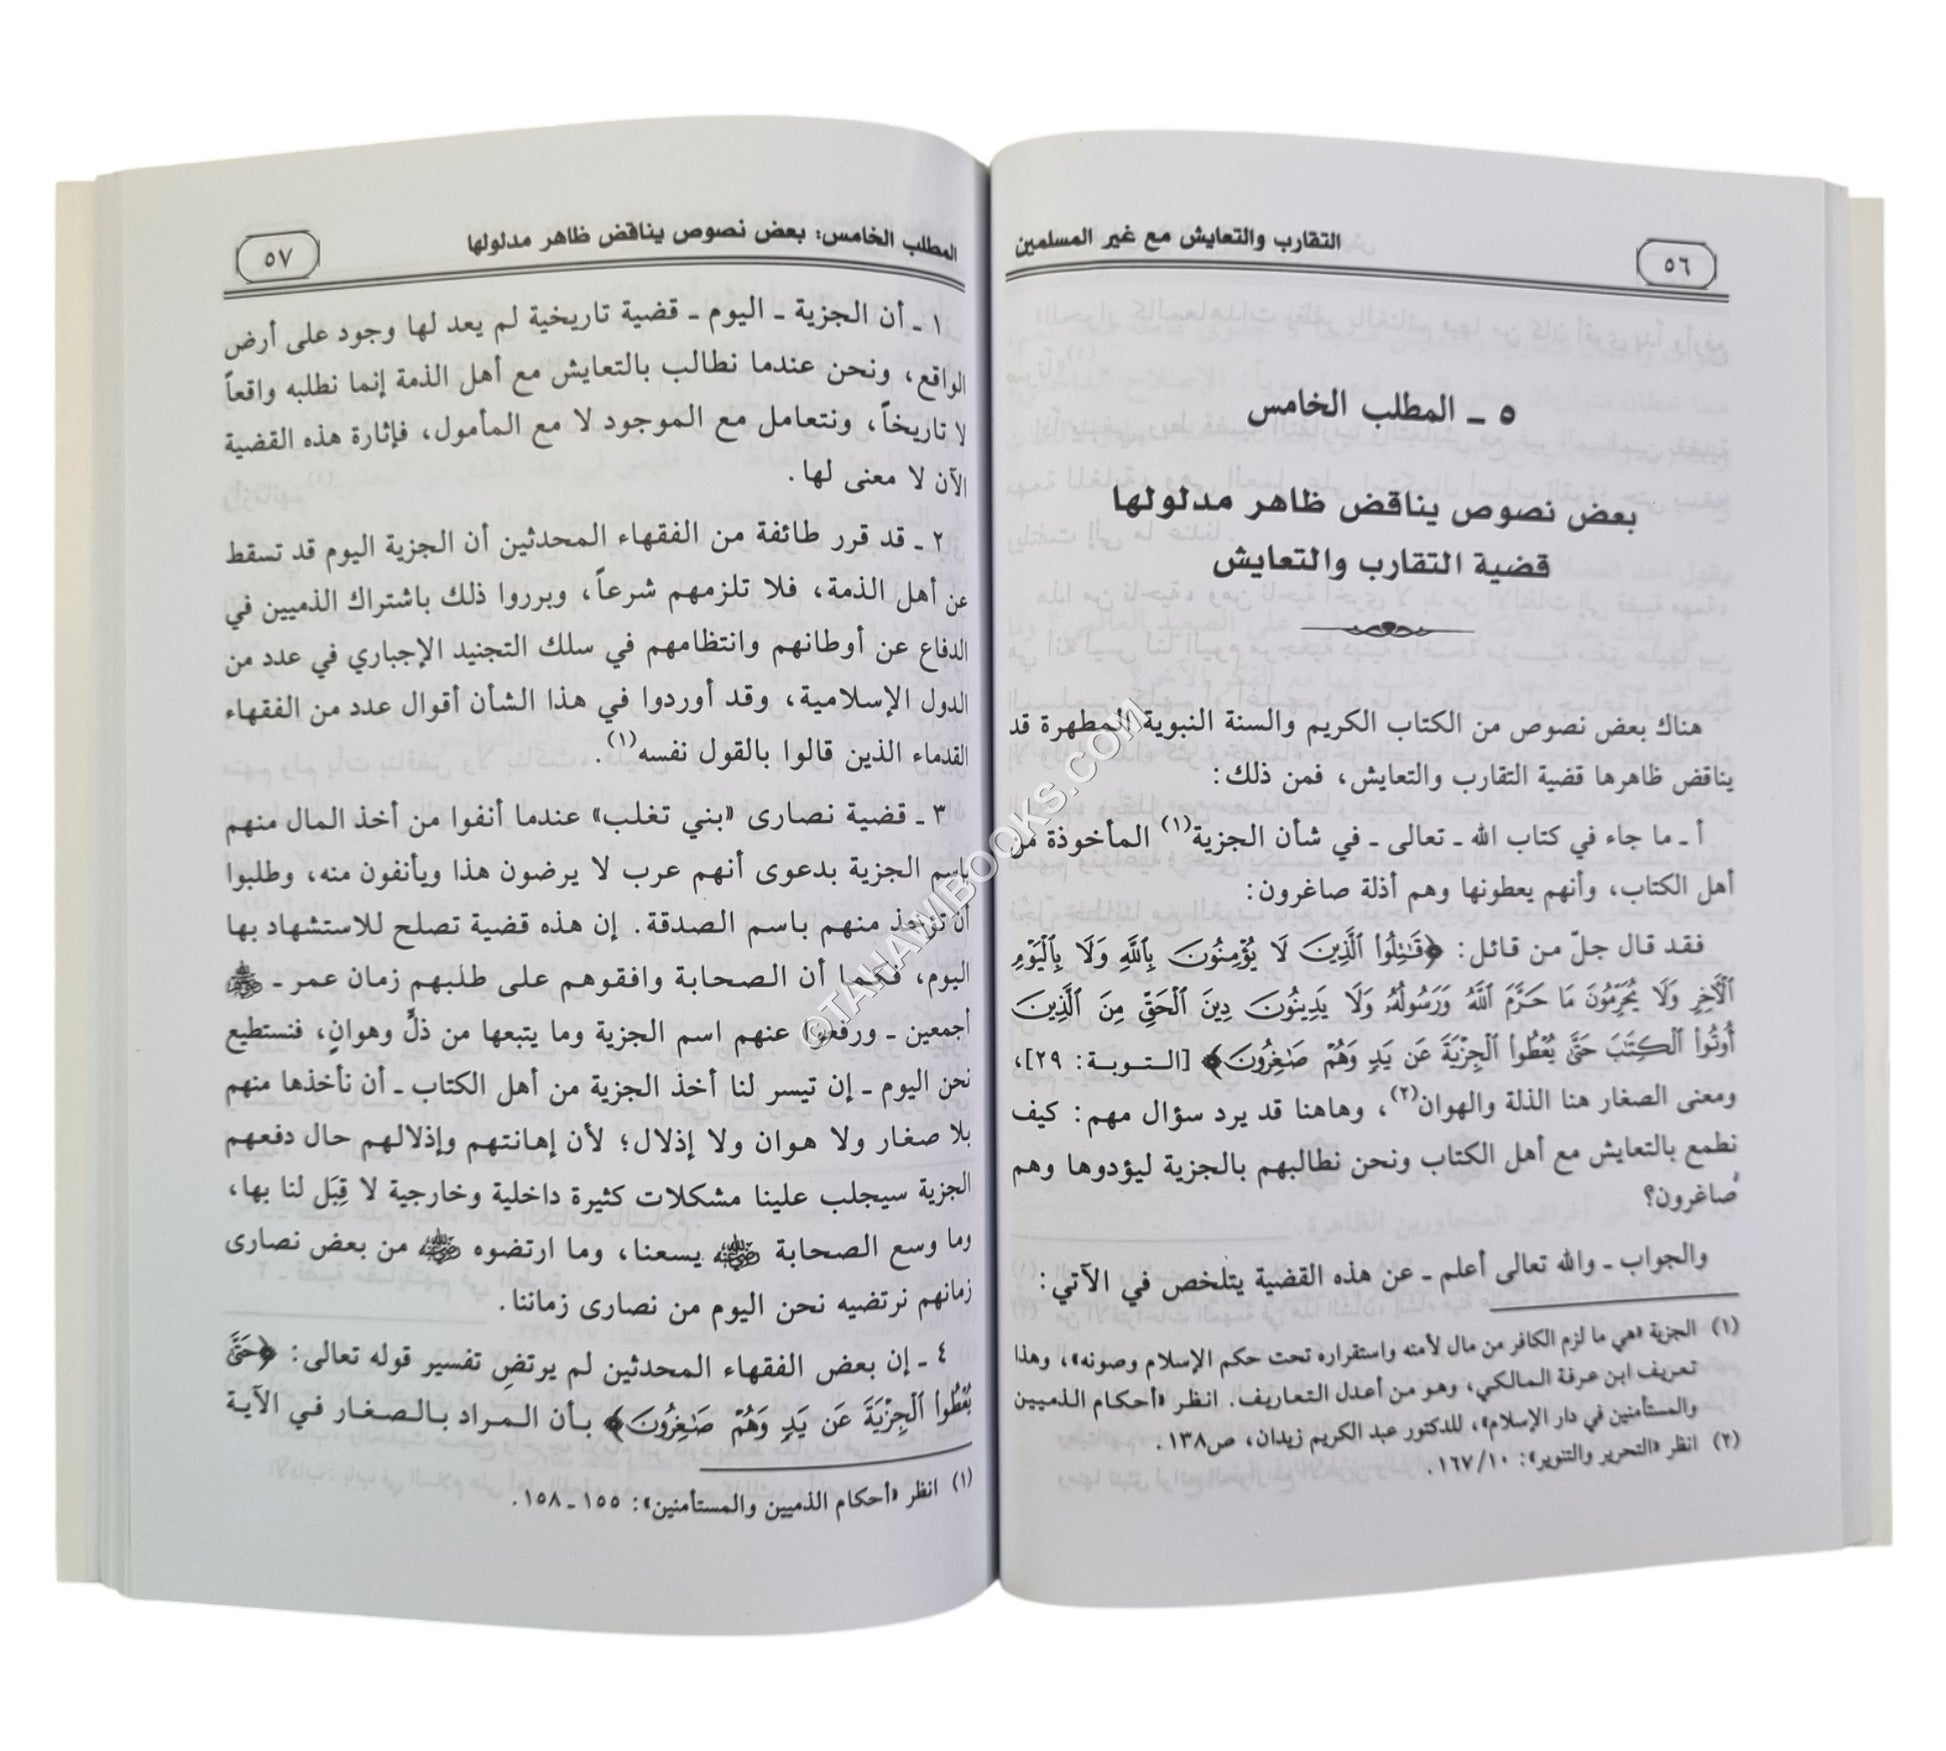 التقارب والتعايش مع غير المسلمين
٥٦
٥ ـ المطلب الخامس
بعض نصوص يناقض ظاهر مدلولها
قضية التقارب والتعايش
هناك بعض نصوص من الكتاب الكريم والسنة النبوية المطهرة قد
يناقض ظاهرها قضية التقارب والتعايش، فمن ذلك:
أ ـ ما جاء في كتاب الله ـ تعالى ـ في شأن الجزية(١) المأخوذة من
أهل الكتاب، وأنهم يعطونها وهم أذلة صاغرون:
فقد قال جلّ من قائل: ﴿قَٰتِلُوا۟ ٱلَّذِينَ لَا يُؤْمِنُونَ بِٱللَّهِ وَلَا بِٱلْيَوْمِ
ٱلْآخِرِ وَلَا يُحَرِّمُونَ مَا حَرَّمَ ٱللَّهُ وَرَسُولُهُۥ وَلَا يَدِينُونَ دِينَ ٱلْحَقِّ مِنَ ٱلَّذِينَ
أُوتُوا۟ ٱلْكِتَٰبَ حَتَّىٰ يُعْطُوا۟ ٱلْجِزْيَةَ عَن يَدٍ وَهُمْ صَٰغِرُونَ﴾ [التوبة: ٢٩]،
ومعنى الصغار هنا الذلة والهوان(٢)، وهاهنا قد يرد سؤال مهم: كيف
نطمع بالتعايش مع أهل الكتاب ونحن نطالبهم بالجزية ليؤدوها وهم
صاغرون؟
والجواب ـ والله تعالى أعلم ـ عن هذه القضية يتلخص في الآتي:
(١) الجزية «هي ما لزم الكافر من مال لأمنه واستقراره تحت حكم الإسلام وصونه»، وهذا
تعريف ابن عرفة المالكي، وهو من أعدل التعاريف. انظر «أحكام الذميين
والمستأمنين في دار الإسلام»، للدكتور عبد الكريم زيدان، ص١٣٨.
(٢) انظر «التحرير والتنوير»: ١٦٧/١٠.
المطلب الخامس: بعض نصوص يناقض ظاهر مدلولها
٥٧
١ ـ أن الجزية ـ اليوم ـ قضية تاريخية لم يعد لها وجود على أرض
الواقع، ونحن عندما نطالب بالتعايش مع أهل الذمة إنما نطلبه واقعاً
لا تاريخاً، ونتعامل مع الموجود لا مع المأمول، فإثارة هذه القضية
الآن لا معنى لها.
٢ ـ قد قرر طائفة من الفقهاء المحدثين أن الجزية اليوم قد تسقط
عن أهل الذمة، فلا تلزمهم شرعاً، وبرروا ذلك باشتراك الذميين في
الدفاع عن أوطانهم وانتظامهم في سلك التجنيد الإجباري في عدد من
الدول الإسلامية، وقد أوردوا في هذا الشأن أقوال عدد من الفقهاء
القدماء الذين قالوا بالقول نفسه(١).
٣ ـ قضية نصارى «بني تغلب» عندما أنفوا من أخذ المال منهم
باسم الجزية بدعوى أنهم عرب لا يرضون هذا ويأنفون منه، وطلبوا
أن تؤخذ منهم باسم الصدقة. إن هذه قضية تصلح للاستشهاد بها
اليوم، فكما أن الصحابة وافقوهم على طلبهم زمان عمر ـ ﷺ
أجمعين ـ ورفعوا عنهم اسم الجزية وما يتبعها من ذلٍّ وهوانٍ، فنستطيع
نحن اليوم ـ إن تيسر لنا أخذ الجزية من أهل الكتاب ـ أن نأخذها منهم
بلا صغار ولا هوان ولا إذلال؛ لأن إهانتهم وإذلالهم حال دفعهم
الجزية سيجلب علينا مشكلات كثيرة داخلية وخارجية لا قِبَل لنا بها،
وما وسع الصحابة رضي الله عنهم يسعنا، وما ارتضوه رضي الله عنهم من بعض نصارى
زمانهم نرتضيه نحن اليوم من نصارى زماننا.
٤ ـ إن بعض الفقهاء المحدثين لم يرتضِ تفسير قوله تعالى: ﴿حَتَّىٰ
يُعْطُوا۟ ٱلْجِزْيَةَ عَن يَدٍ وَهُمْ صَٰغِرُونَ﴾ بأن المراد بالصغار في الآية
(١) انظر «أحكام الذميين والمستأمنين»: ١٥٥ ـ ١٥٨.
©TAHAWIBOOKS.COM